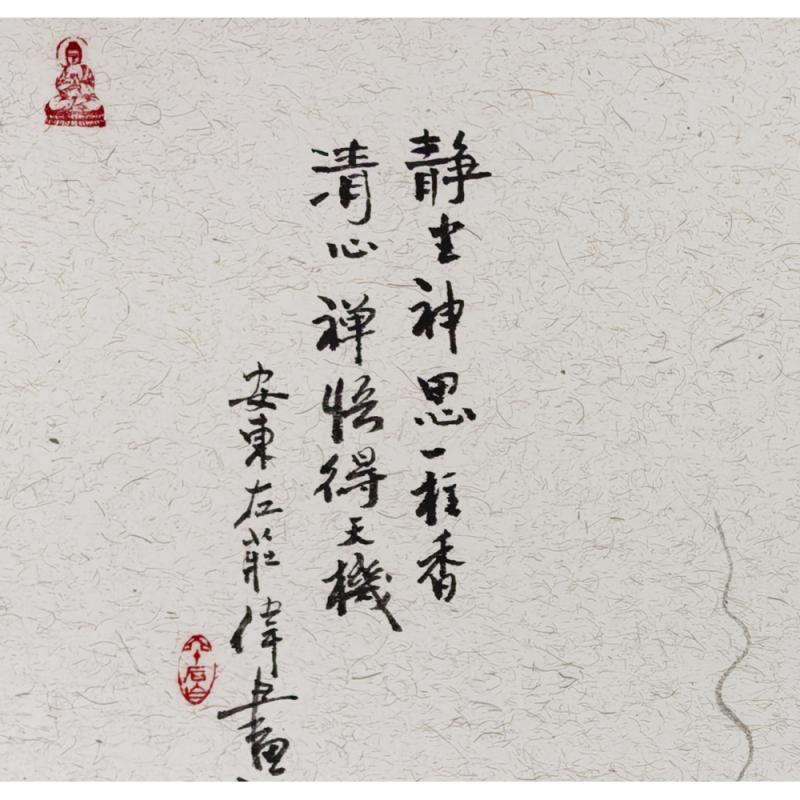 静坐神思一柱香
清心禅悟得天機
安東左莊偉畫